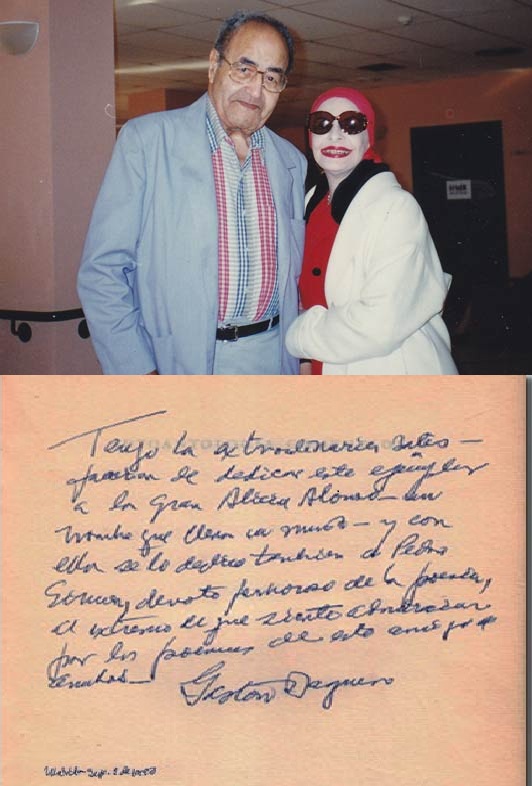 Tengo la extraordinaria satis-
facción de dedicar este ejemplar
a la Gran Alicia Alonso - un
nombre que llena un mundo - y con
ella se lo dedico también a Pedro
Simón, devoto fervoroso de la poesía,
al extremo de que siente
por los poemas de este amigo
Gastón Baquero